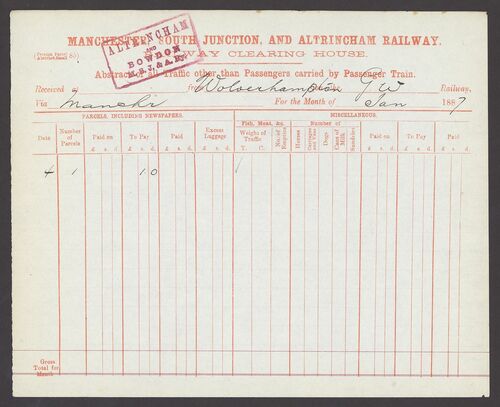 MANCHESTER, SOUTH JUNCTION, AND ALTRINCHAM RAILWAY.
RAILWAY CLEARING HOUSE.
ALTRINCHAM
AND
BOWDON
M.S.J. & A. Ry.
Abstract of all Traffic other than Passengers carried by Passenger Train.
Received from Wolverhampton G W Railway.
Via Manchr For the Month of Jan 1887
PARCELS, INCLUDING NEWSPAPERS. Fish, Meat, &c. MISCELLANEOUS.
Date Number of Parcels Paid on To Pay Paid Excess Luggage Weight of Traffic No. of Empties Number of Horses Carriages and Vans Dogs Cans of Milk Sundries Paid on To Pay Paid
£ s. d. £ s. d. £ s. d. £ s. d. T. C. £ s. d. £ s. d. £ s. d.
4 1 1 0
Gross
Total for
Month